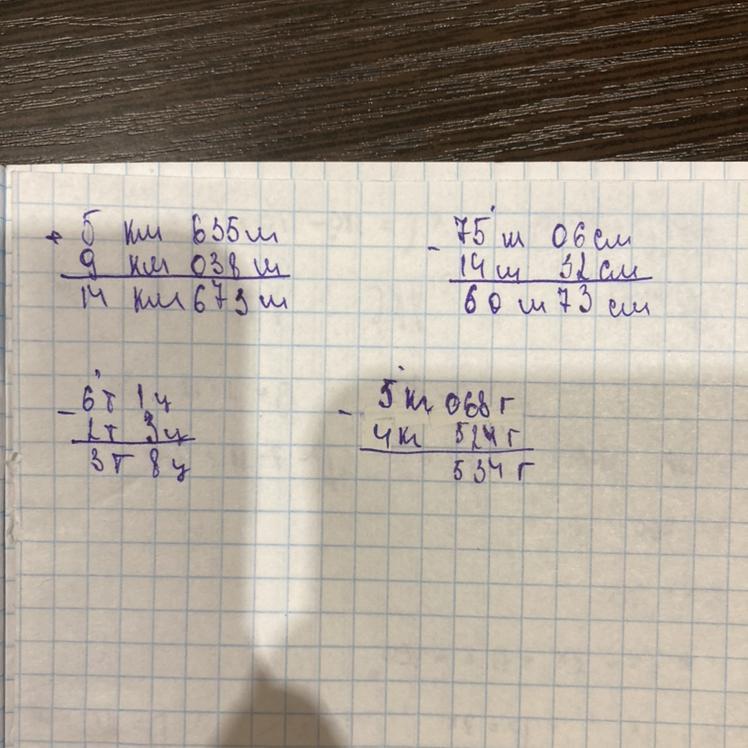 + 5 км 635 м
9 км 038 м
14 км 673 м
- 75 м 06 см
14 м 32 см
60 м 73 см
- 6т 1ц
2т 3ц
3т 8ц
- 5 кг 068 г
4 кг 524 г
534 г